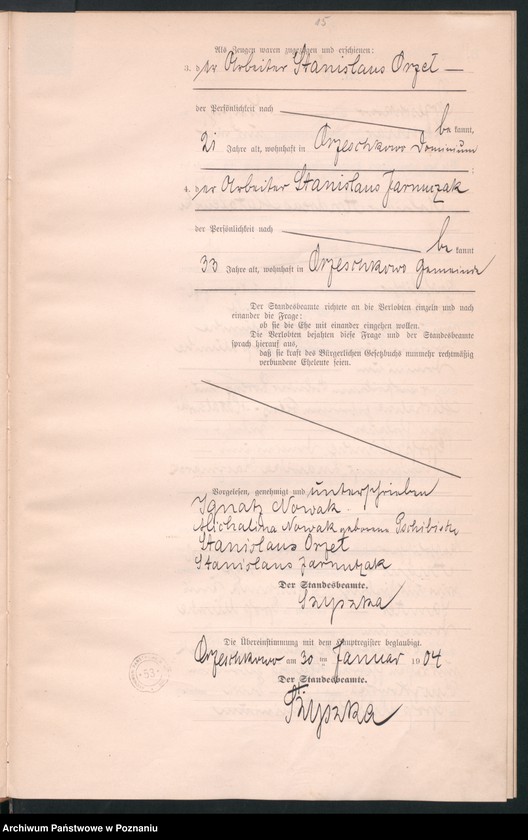 Als Zeugen waren zugezogen und erschienen:
3. der Arbeiter Stanislaus Orzeł —
der Persönlichkeit nach
be kannt,
21 Jahre alt, wohnhaft in Orzeschkowo Dominium
;
4. der Arbeiter Stanislaus Jarmuzak
der Persönlichkeit nach
be kannt
33 Jahre alt, wohnhaft in Orzeschkowo Gemeinde
Der Standesbeamte richtete an die Verlobten einzeln und nach
einander die Frage:
ob sie die Ehe mit einander eingehen wollen.
Die Verlobten bejahten diese Frage und der Standesbeamte
sprach hierauf aus,
daß sie kraft des Bürgerlichen Gesetzbuchs nunmehr rechtmäßig
verbundene Eheleute seien.
Vorgelesen, genehmigt und unterschrieben
Ignatz Nowak
Michalina Nowak geborene
Stanislaus Orzeł
Stanislaus Jarmuzak
Der Standesbeamte.
Szyszka
Die Übereinstimmung mit dem Hauptregister beglaubigt.
Orzeschkowo am 30 ten Januar 1904
Der Standesbeamte.
Szyszka
53
Archiwum Państwowe w Poznaniu